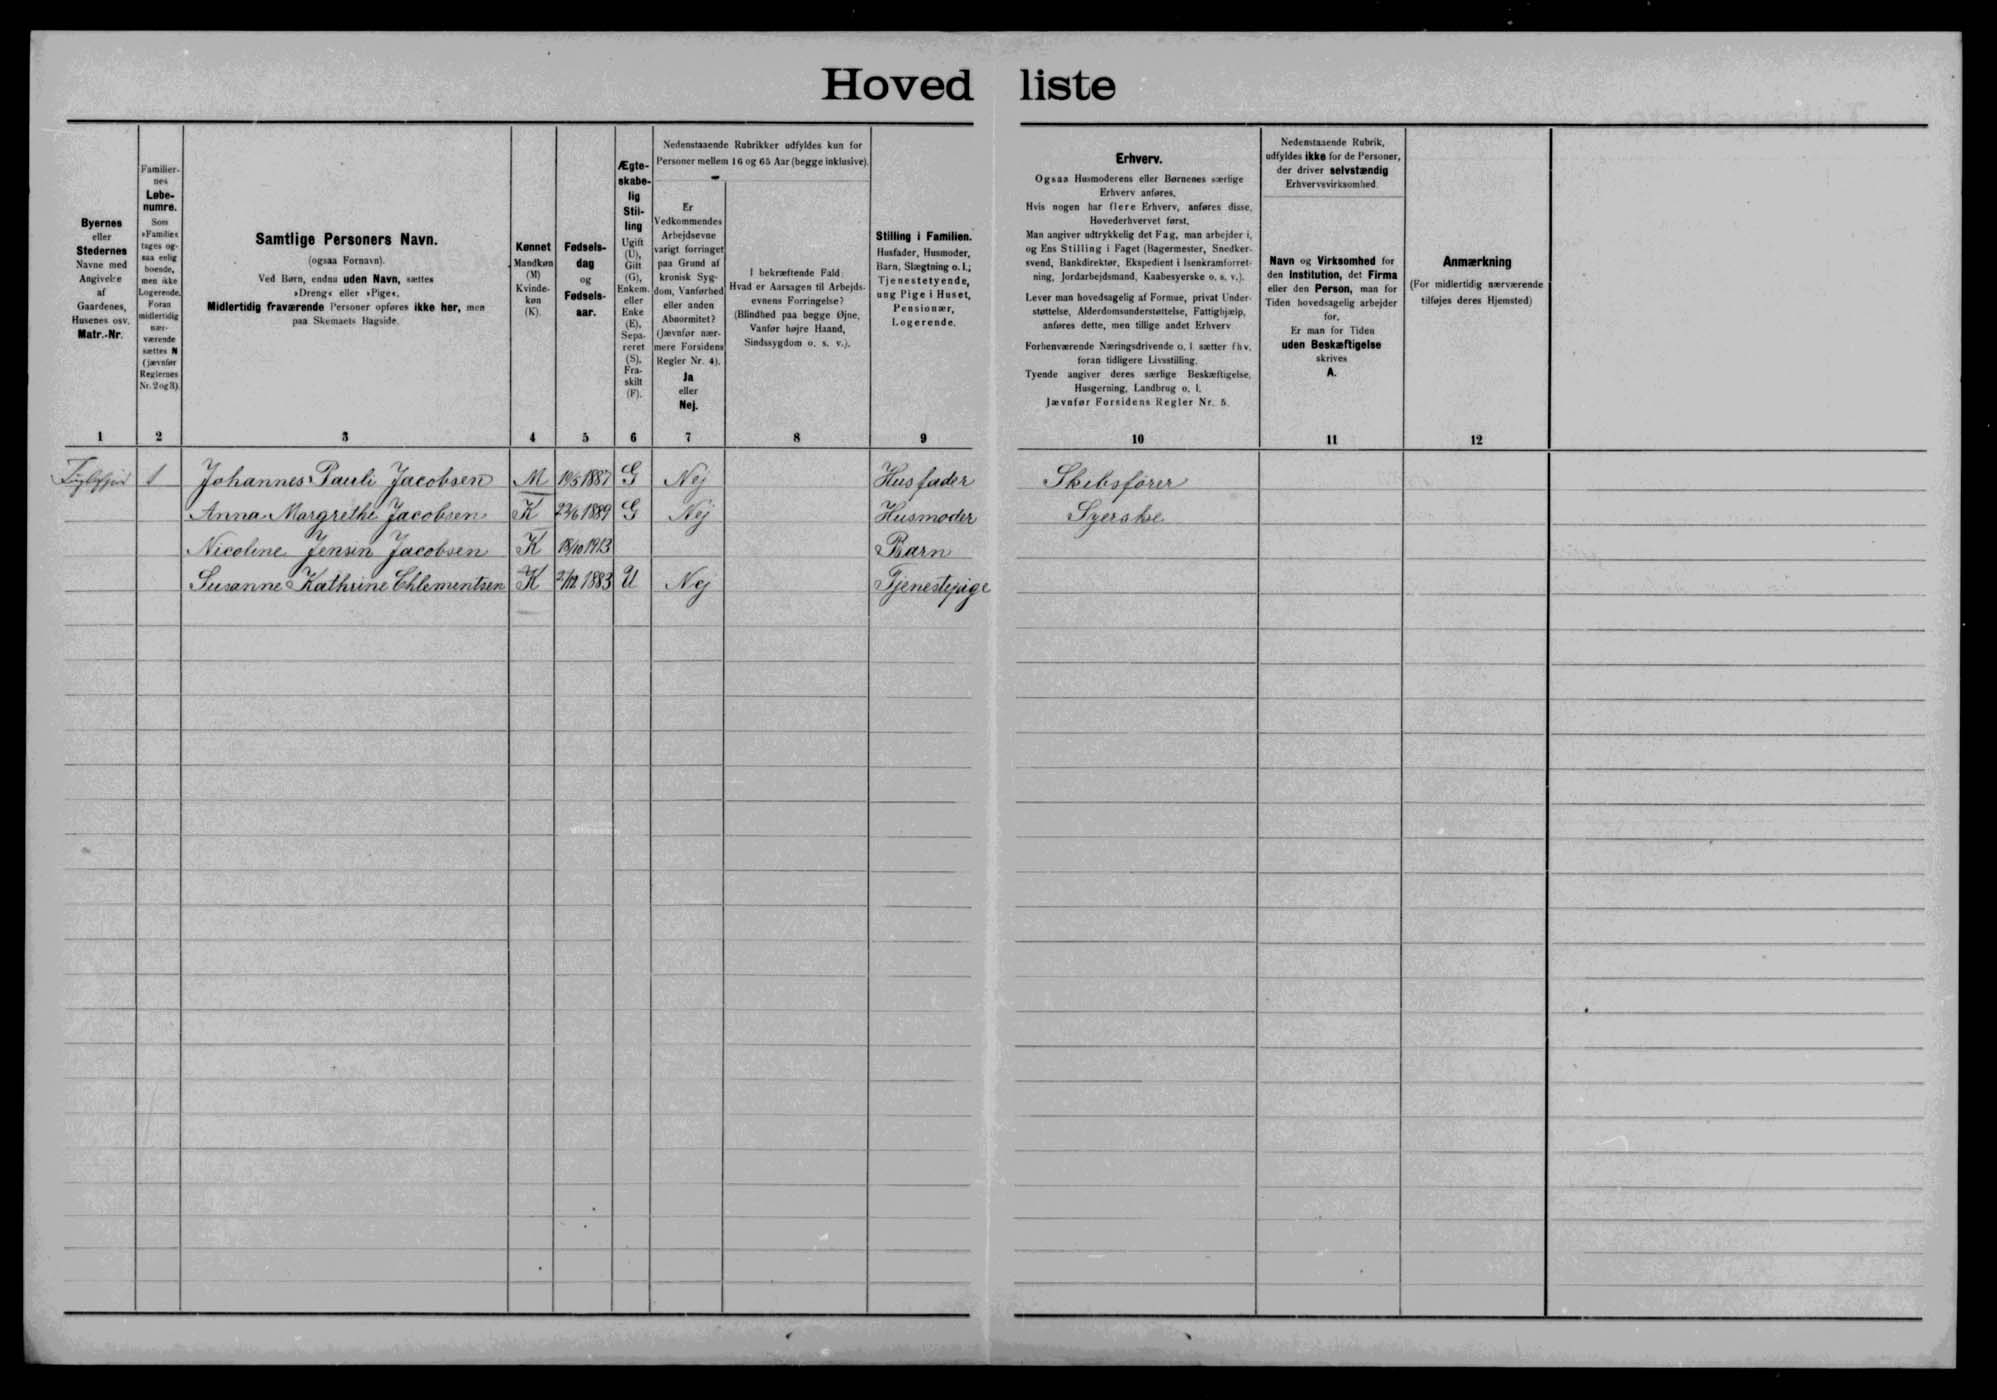 Hovedliste
Byernes
eller
Stedernes
Navne med
Angivelse
af
Gaardenes,
Husenes osv.
Matr.-Nr.
Familier-
nes
Løbe-
numre.
Som
»Familie«
tages og-
saa enlig
boende,
men ikke
Logerende.
Foran
midlertidig
nær-
værende
sættes N
(jævnfør
Reglernes
Nr. 2 og 3).
Samtlige Personers Navn.
(ogsaa Fornavn).
Ved Børn, endnu uden Navn, sættes
»Dreng« eller »Pige«.
Midlertidig fraværende Personer opføres ikke her, men
paa Skemaets Bagside.
Kønnet
Mandkøn
(M)
Kvinde-
køn
(K).
Fødsels-
dag
og
Fødsels-
aar.
Ægte-
skabe-
lig
Stil-
ling
Ugift
(U),
Gift
(G),
Enkem.
eller
Enke
(E),
Sepa-
reret
(S),
Fra-
skilt
(F).
Nedenstaaende Rubrikker udfyldes kun for
Personer mellem 16 og 65 Aar (begge inklusive).
Er
Vedkommendes
Arbejdsevne
varigt forringet
paa Grund af
kronisk Syg-
dom, Vanførhed
eller anden
Abnormitet?
(Jævnfør nær-
mere Forsidens
Regler Nr. 4).
Ja
eller
Nej.
I bekræftende Fald:
Hvad er Aarsagen til Arbejds-
evnens Forringelse?
(Blindhed paa begge Øjne,
Vanfør højre Haand,
Sindssygdom o. s. v.).
Stilling i Familien.
Husfader, Husmoder,
Barn, Slægtning o. l.;
Tjenestetyende,
ung Pige i Huset,
Pensionær,
Logerende.
Erhverv.
Ogsaa Husmoderens eller Børnenes særlige
Erhverv anføres.
Hvis nogen har flere Erhverv, anføres disse,
Hovederhvervet først.
Man angiver udtrykkelig det Fag, man arbejder i,
og Ens Stilling i Faget (Bagermester, Snedker-
svend, Bankdirektør, Ekspedient i Isenkramforret-
ning, Jordarbejdsmand, Kaabesyerske o. s. v.).
Lever man hovedsagelig af Formue, privat Under-
støttelse, Alderdomsunderstøttelse, Fattighjælp,
anføres dette, men tillige andet Erhverv
Forhenværende Næringsdrivende o. l. sætter fhv.
foran tidligere Livsstilling.
Tyende angiver deres særlige Beskæftigelse,
Husgerning, Landbrug o. l.
Jævnfør Forsidens Regler Nr. 5.
Nedenstaaende Rubrik,
udfyldes ikke for de Personer,
der driver selvstændig
Erhvervsvirksomhed.
Navn og Virksomhed for
den Institution, det Firma
eller den Person, man for
Tiden hovedsagelig arbejder
for.
Er man for Tiden
uden Beskæftigelse
skrives
A.
Anmærkning
(For midlertidig nærværende
tilføjes deres Hjemsted)
1 2 3 4 5 6 7 8 9 10 11 12
1 Johannes Pauli Jacobsen M 10/5 1887 G Nej Husfader Skibsfører
Anna Margrethe Jacobsen K 22/6 1889 G Nej Husmoder Syerske
Nicoline Jensin Jacobsen K 18/10 1913 Barn
Susanne Kathrine Chlementsen K 2/12 1883 U Nej Tjenestepige